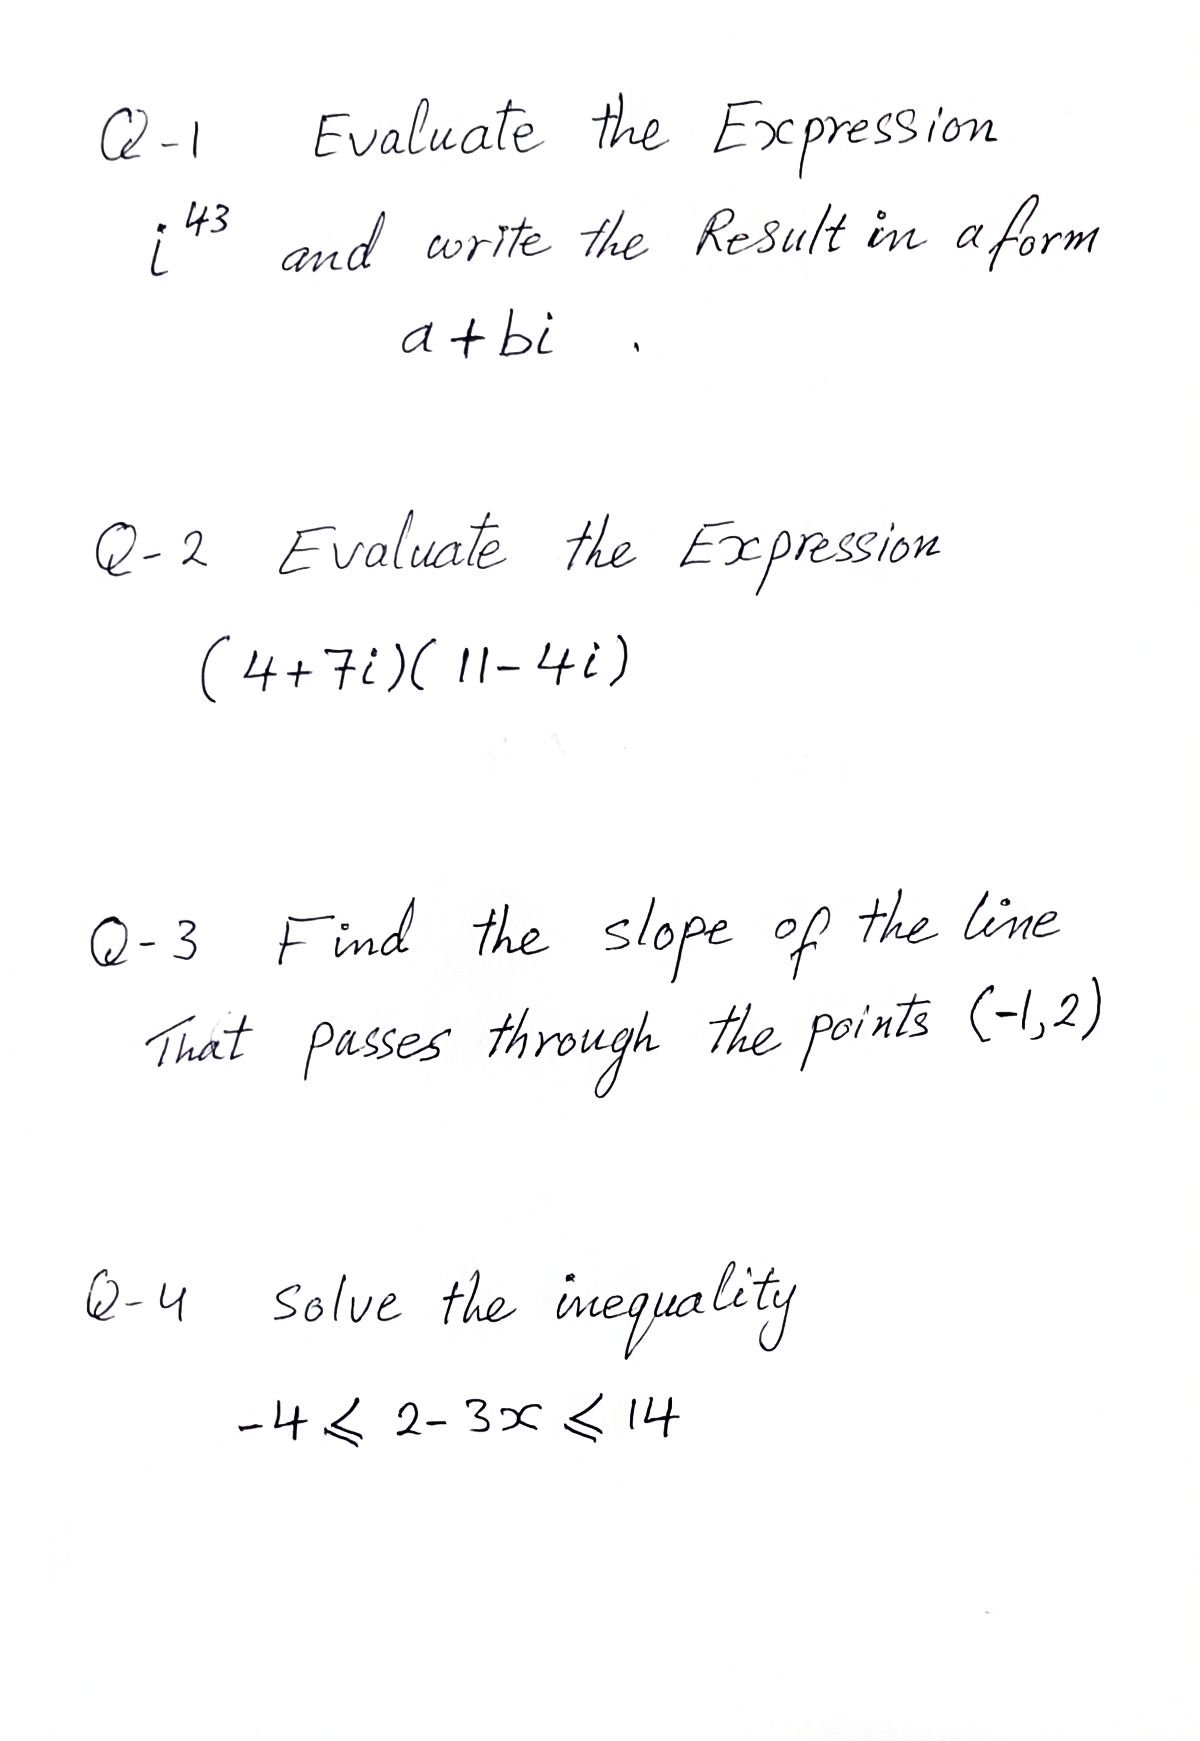 Q-1 Evaluate the Expression
i^43 and write the Result in a form
a+bi .
Q-2 Evaluate the Expression
(4+7i)(11-4i)
Q-3 Find the slope of the line
That passes through the points (-1,2)
Q-4 Solve the inequality
-4 ⩽ 2-3x ⩽ 14